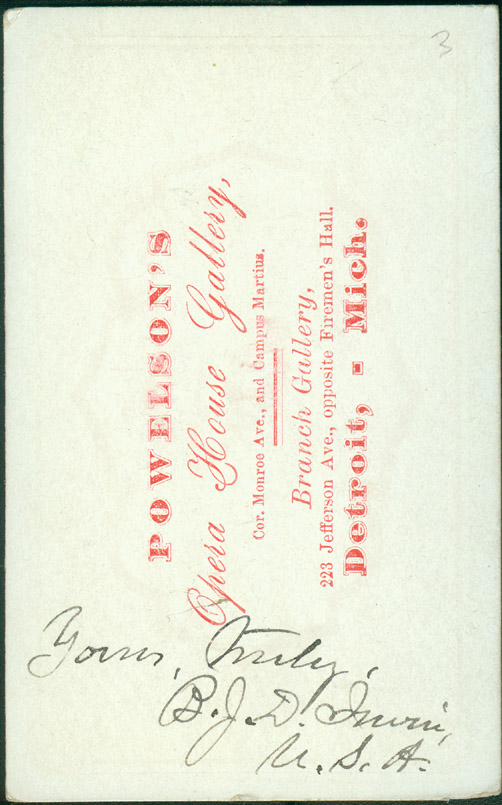 POWELSON'S
Opera House Gallery,
Cor. Monroe Ave., and Campus Martius.
Branch Gallery,
223 Jefferson Ave., opposite Firemen's Hall.
Detroit, - Mich.
Yours, Truly,
B. J. D. Irwin,
U. S. A.
3